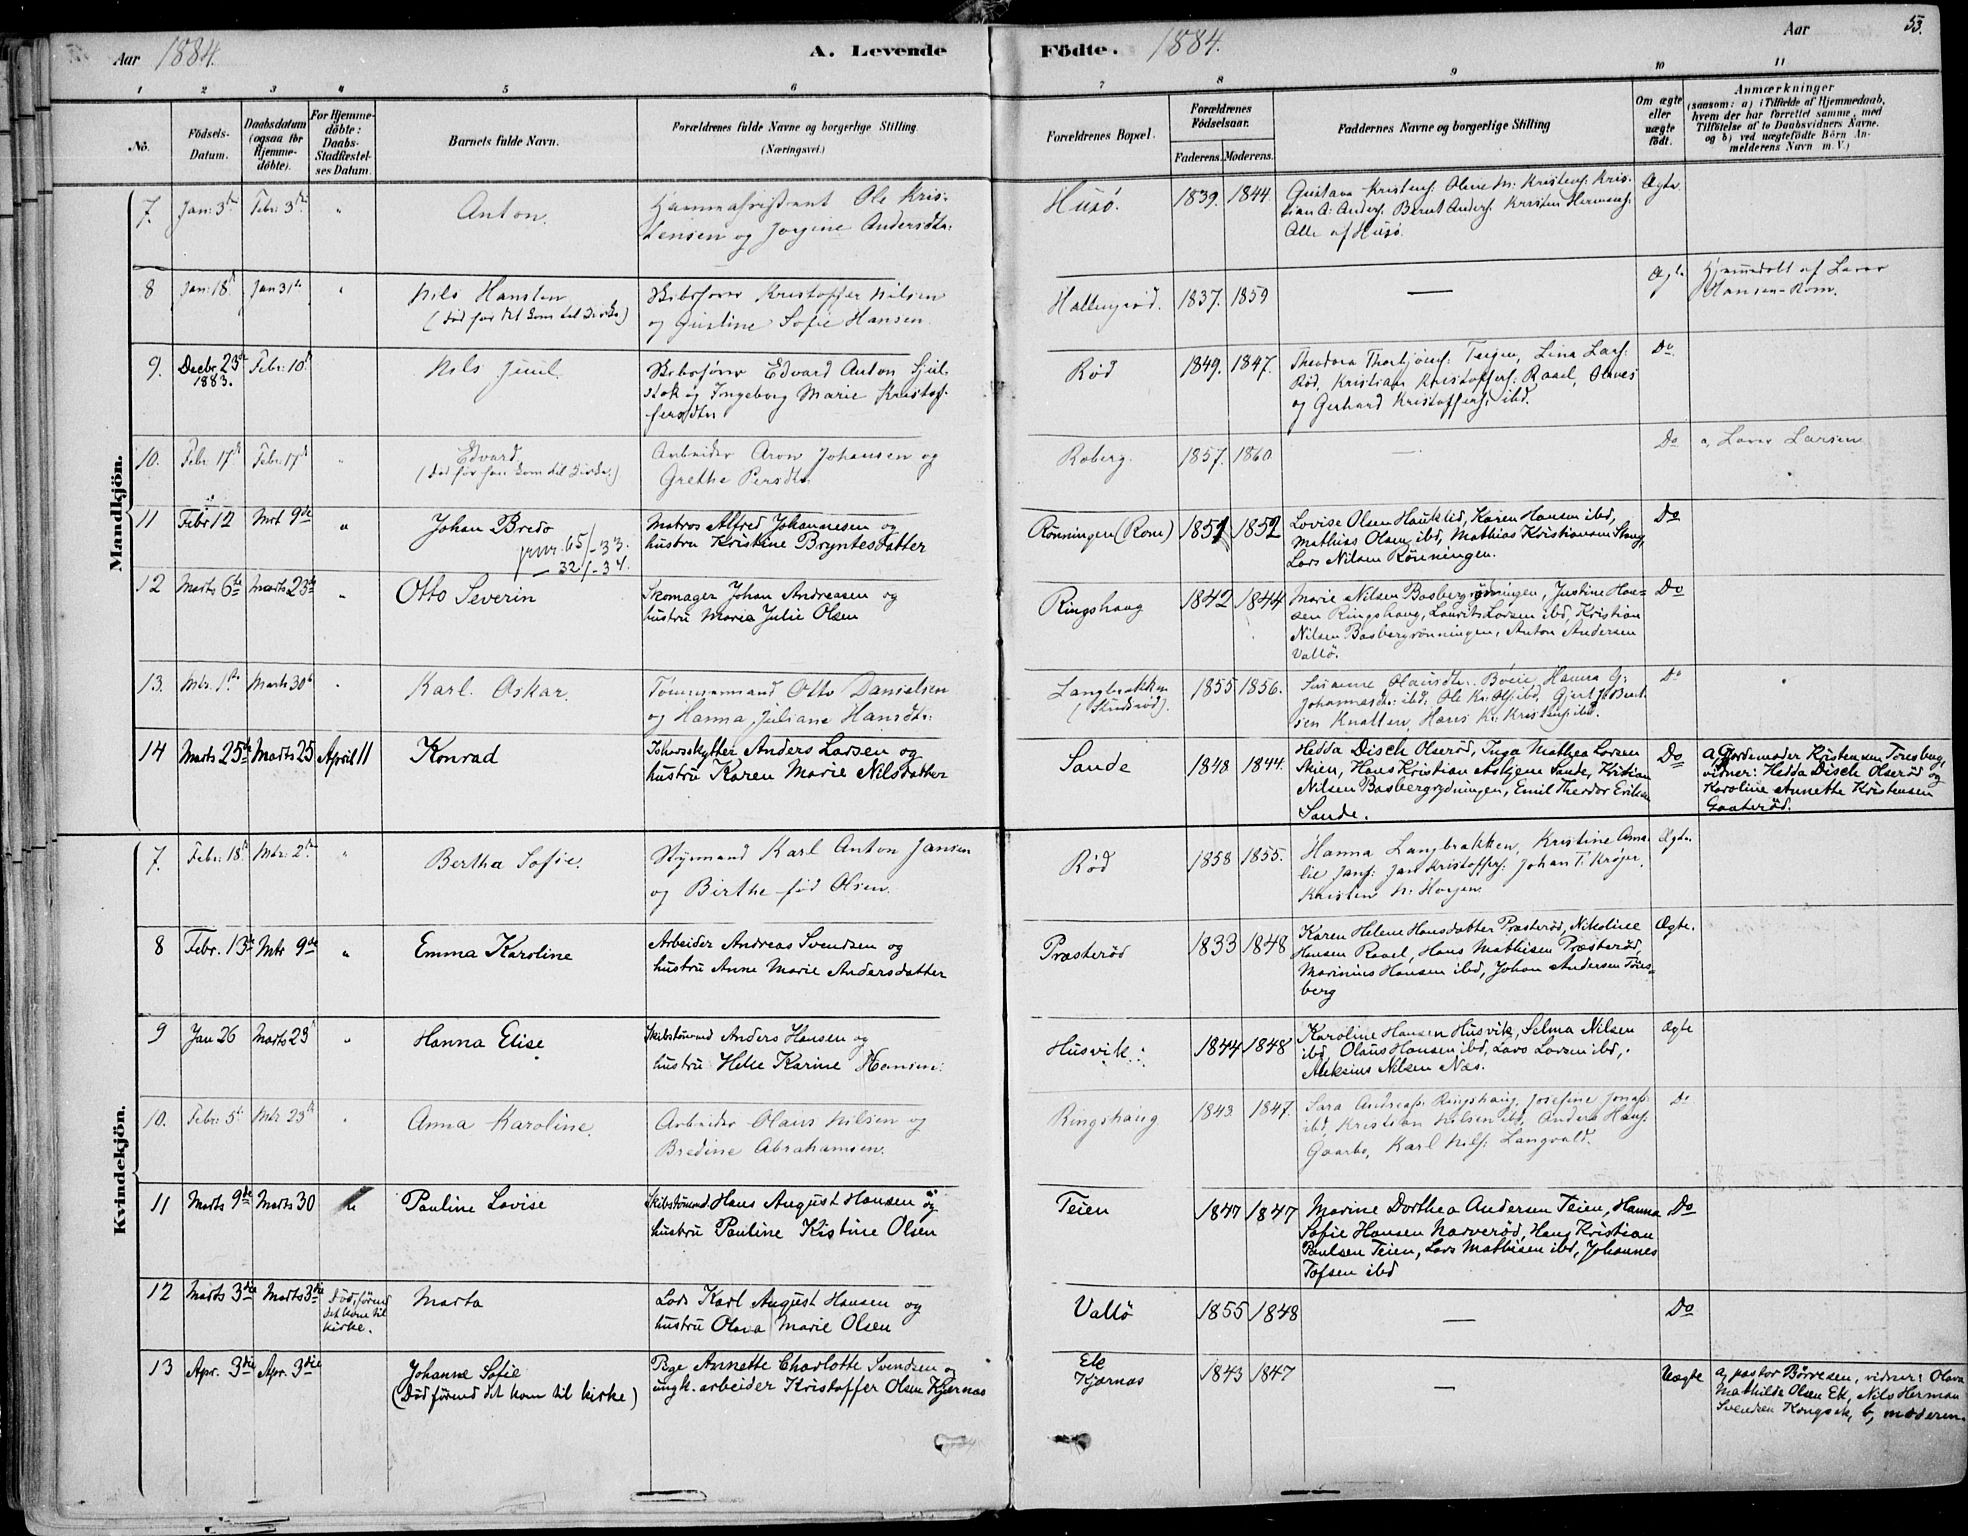 Aar 1884. A. Levende Födte. 1884. Aar 53.
1 2 3 4 5 6 7 8 9 10 11
No. Födsels-Datum. Daabsdatum (ogsaa for Hjemmedöbte). For Hjemmedöbte: Daabs-Stadfæstelses Datum. Barnets fulde Navn. Forældrenes fulde Navne og borgerlige Stilling. (Næringsvei.) Forældrenes Bopæl. Forældrenes Födselsaar. Faderens. Moderens. Faddernes Navne og borgerlige Stilling Om ægte eller uægte födt. Anmærkninger (saasom: a) i Tilfælde af Hjemmedaab, hvem der har forrettet samme, med Tilföielse af to Daabsvidners Navne. og b) ved uægtefödte Börn Anmelderens Navn m. V.)
Mandkjön.
7. Jan: 3die Febr: 3die " Anton. Ole Kris-
tensen og Jorgine Andersdtr: Husö. 1839. 1844. Gustava Kristens: Olene M: Kristens: Kris-
tian A: Anders: Bernt Anders: Kristen Hermens:
Alle af Husö. Ægte
8 Jan: 18d Jan 31te " Nils Hansten
(död för det kom til kirke) Skibsförer Kristoffer Nilsen
og Gustine Sofie Hansen. 1837. 1859 — Ægte Hjemmedöbt af Laver
Hansen-Rom.
9. Decbr 23de
1883. Febr: 10d Nils Juul. Skibsförer Edvard Anton Sjul-
stok og Ingeborg Marie Kristof-
fersdtr Röd 1849. 1847. Theodora Thorbjörns: Teigen, Lina Lars:
Röd, Kristian Kristoffers: Raael, Olaves
og Gerhard Kristoffers: ibd. Do
10. Febr 17d Febr: 17d " Edvard
(död för han kom til kirke) Arbeider Aron Johansen og
Grethe Persdtr Roberg. 1857. 1860 — Do a, Laver Larsen
11 Febr 12 Mrt 9de " Johan Bredo
65/-33.
— 32/-34. Matros Alfred Johannesen og
hustru Kristine Bryntesdatter Rönningen (Rom) 1851 1852 Lovise Olsen Hauklid, Karen Hansen ibd,
Mathias Olsen ibd, Mathias Kristiansen
Lars Nilsen Rönningen. Do
12 Marts 6te Marts 23de " Otto Severin Skomager Johan Andreasen og
hustru Maria Julie Olsen Ringshaug 1842 1844 Marie Nilsen Basbergrydningen, Justine Han-
sen Ringshaug, Laurits Larsen ibd, Kristian
Nilsen Basbergrönningen, Anton Andersen
Vallö. Do
13. Mtr. 1ste Marts 30te " Karl Oskar. Tömmermand Otto Danielsen
og Hanna Juliane Hansdtr: Langbrakken
1855 1856. Susanne Olausdtr. Böeie, Hanna G:
Johannasdtr: ibd: Ole Kr: Ols: ibd, Gjert
sen Knatten, Hans Kr: Kristens: ibd. Do
14 Marts 25de Marts 25 April 11 Konrad Anders Larsen og
hustru Karen Marie Nilsdatter Sande 1848 1844. Hedda Disch Olseröd, Inga Mathea Larsen
Skien, Hans Kristian Asbjens Sande, Kristian
Nilsen Basbergrydningen, Emil Theodor Eriksen
Sande. Do a, Gjordemoder Kristensen Töresberg,
vidner: Hedda Disch Olseröd og
Karoline Annette Kristensen
Gaateröd.
Kvindekjön.
7. Febr: 18de Mtr: 2den " Bertha Sofie. Styrmand Karl Anton Jansen
og Birthe föd Olsen. Röd 1858 1855. Hanna Langbrakken, Kristine Ama-
lie Jans: Jan Kristoffers: Johan T. Kröjer,
Kristen N: Horgen. Ægte
8 Febr. 13de Mtr 9de " Emma Karoline Arbeider Andreas Svendsen og
hustru Anne Marie Andersdatter Præsteröd 1833 1848 Karen Helene Hansdatter Præsteröd, Nikoline
Hansen Raael, Hans Mathisen Præsteröd,
Marinius Hansen ibd, Johan Andersen Töres-
berg Ægte.
9 Jan 26 Marts 23 " Hanna Elise Skibstömmd Anders Hansen og
hustru Helle Karine Hansen: Husvik: 1844 1848 Karoline Hansen Husvik, Selma Nilsen
ibd, Olaus Hansen ibd, Lars Larsen ibd,
Aleksius Nilsen Næs. Ægte
10. Febr: 5te Mtr 23de " Anna Karoline. Arbeider Olaus Nilsen og
Bredine Abrahamsen. Ringshaug 1843 1847. Sara Andreas: Ringshaug, Josefine Jonas:
ibd, Kristian Nilsen ibd, Anders Hans:
Gaarbo, Karl Nils: Langvald. Do
11 Marts 9de Marts 30 Pauline Lovise Skibstömmd. Hans August Hansen og
hustru Pauline Kistine Olsen Teien 1847 1847 Marine Dorthea Andersen Teien, Hanna
Sofie Hansen Narveröd, Hans Kristian
Paulsen Teien, Lars Mathisen ibd, Johannes
Tofsen ibd Do
12 Marts 3die Marts 3die Död förend
det kom til
kirke. Marta Lods Karl August Hansen og
hustru Olava Marie Olsen Vallö 1855 1848 — Do
13 Apr. 3die Apr. 3die Johanne Sofie
(Död förend det kom til kirke) Pge Annette Charlotte Svendsen og
ungk. arbeider Kristoffer Olsen Kjærnæs Ek
Kjærnæs 1843 1847 — Uægte a, pastor Börresen, vidner: Olava
Mathilde Olsen Ek, Nils Herman
Svendsen Kongsek, b, moderen.